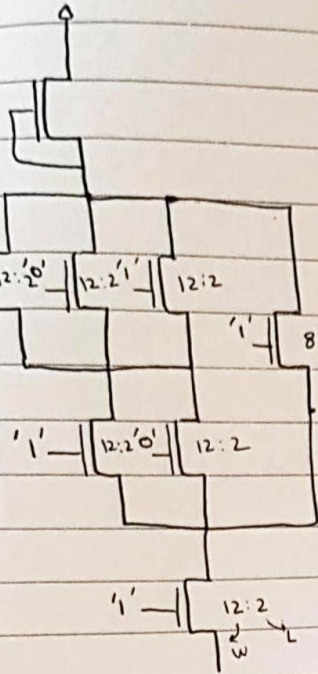 12:2 '0' 12:2 '1' 12:2
'1' 8
'1' 12:2 '0' 12:2
'1' 12:2
W L